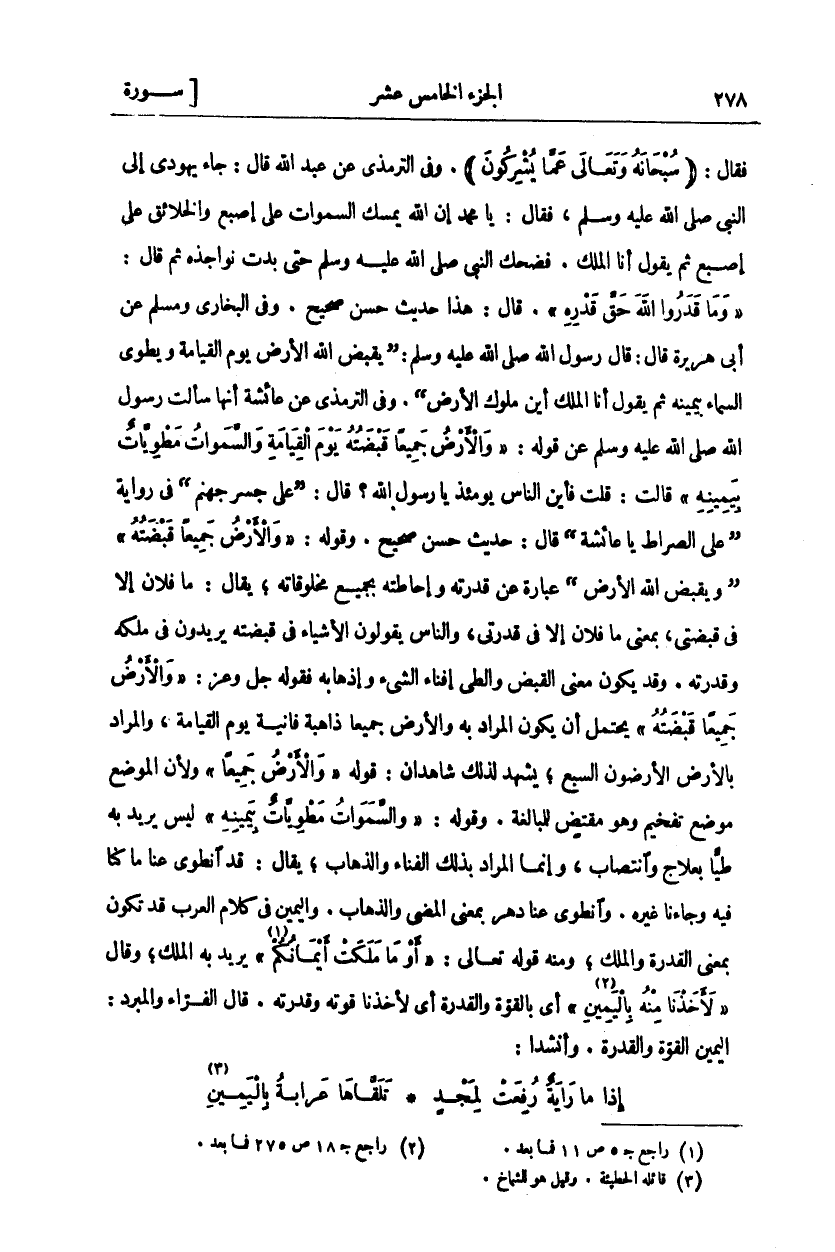 ٢٧٨ الجزء الخامس عشر [ ســـورة
فقال : ﴿ سُبْحَانَهُ وَتَعَـالَى عَمَّا يُشْرِكُونَ ﴾ . وفى الترمذى عن عبد الله قال : جاء يهودى إلى
النبى صلى الله عليه وسـلم ، فقال : يا محمد إن الله يمسك السموات على إصبع والخلائق على
إصـبع ثم يقول أنا الملك . فضحك النبى صلى الله عليـه وسلم حتى بدت نواجذه ثم قال :
« وَمَا قَدَرُوا اللهَ حَقَّ قَدْرِهِ » . قال : هذا حديث حسن صحيح . وفى البخارى ومسلم عن
أبى هريرة قال : قال رسول الله صلى الله عليه وسلم : ”يقبض الله الأرض يوم القيامة ويطوى
السماء بيمينه ثم يقول أنا الملك أين ملوك الأرض“ . وفى الترمذى عن عائشة أنها سألت رسول
الله صلى الله عليه وسلم عن قوله : « وَالْأَرْضُ جَمِيعًا قَبْضَتُهُ يَوْمَ الْقِيَامَةِ وَالسَّمَواتُ مَطْوِيَّاتٌ
بِيَمِينِهِ » قالت : قلت فأين الناس يومئذ يا رسول الله ؟ قال : ”على جسر جهنم“ فى رواية
”على الصراط يا عائشة“ قال : حديث حسن صحيح . وقوله : « وَالْأَرْضُ جَمِيعًا قَبْضَتُهُ »
” ويقبض الله الأرض “ عبارة عن قدرته وإحاطته بجميـع مخلوقاته ؛ يقال : ما فلان إلا
فى قبضتى ، بمعنى ما فلان إلا فى قدرتى ، والناس يقولون الأشياء فى قبضته يريدون فى ملكه
وقدرته . وقد يكون معنى القبض والطى إفناء الشىء وإذهابه فقوله جل وعز : « وَالْأَرْضُ
جَمِيعًا قَبْضَتُهُ » يحتمل أن يكون المراد به والأرض جميعا ذاهبة فانيـة يوم القيامة ، والمراد
بالأرض الأرضون السبع ؛ يشهد لذلك شاهدان : قوله « وَالْأَرْضُ جَمِيعًا » ولأن الموضع
موضع تفخيم وهو مقتضٍ للبالغة . وقوله : « والسَّمَوَاتُ مَطْوِيَّاتٌ بِيَمِينِهِ » ليس يريد به
طيًّا بعلاج وآنتصاب ، وإنمـا المراد بذلك الفناء والذهاب ؛ يقال : قد آنطوى عنا ما كنا
فيه وجاءنا غيره . وآنطوى عنا دهر بمعنى المضى والذهاب . واليمين فى كلام العرب قد تكون
بمعنى القدرة والملك ؛ ومنه قوله تعـالى : « أَوْ مَا مَلَكَتْ أَيْمَـانُكُمْ (١) » يريد به الملك ؛ وقال
« لَأَخَذْنَا مِنْهُ بِالْيَمِينِ (٢) » أى بالقوّة والقدرة أى لأخذنا قوته وقدرته . قال الفـرّاء والمبرد :
اليمين القوّة والقدرة . وأنشدا :
إذا ما رَايَةٌ رُفِعَتْ لِمَجْـدٍ * تَلَقَّاهَا عَرابـةُ بِالْيَمِـينِ (٣)
(١) راجع جـ ٥ ص ١١ فـا بعد . (٢) راجع جـ ١٨ ص ٢٧٥ فـا بعد .
(٣) قائله الحطيئة . وقيل هو للشماخ .